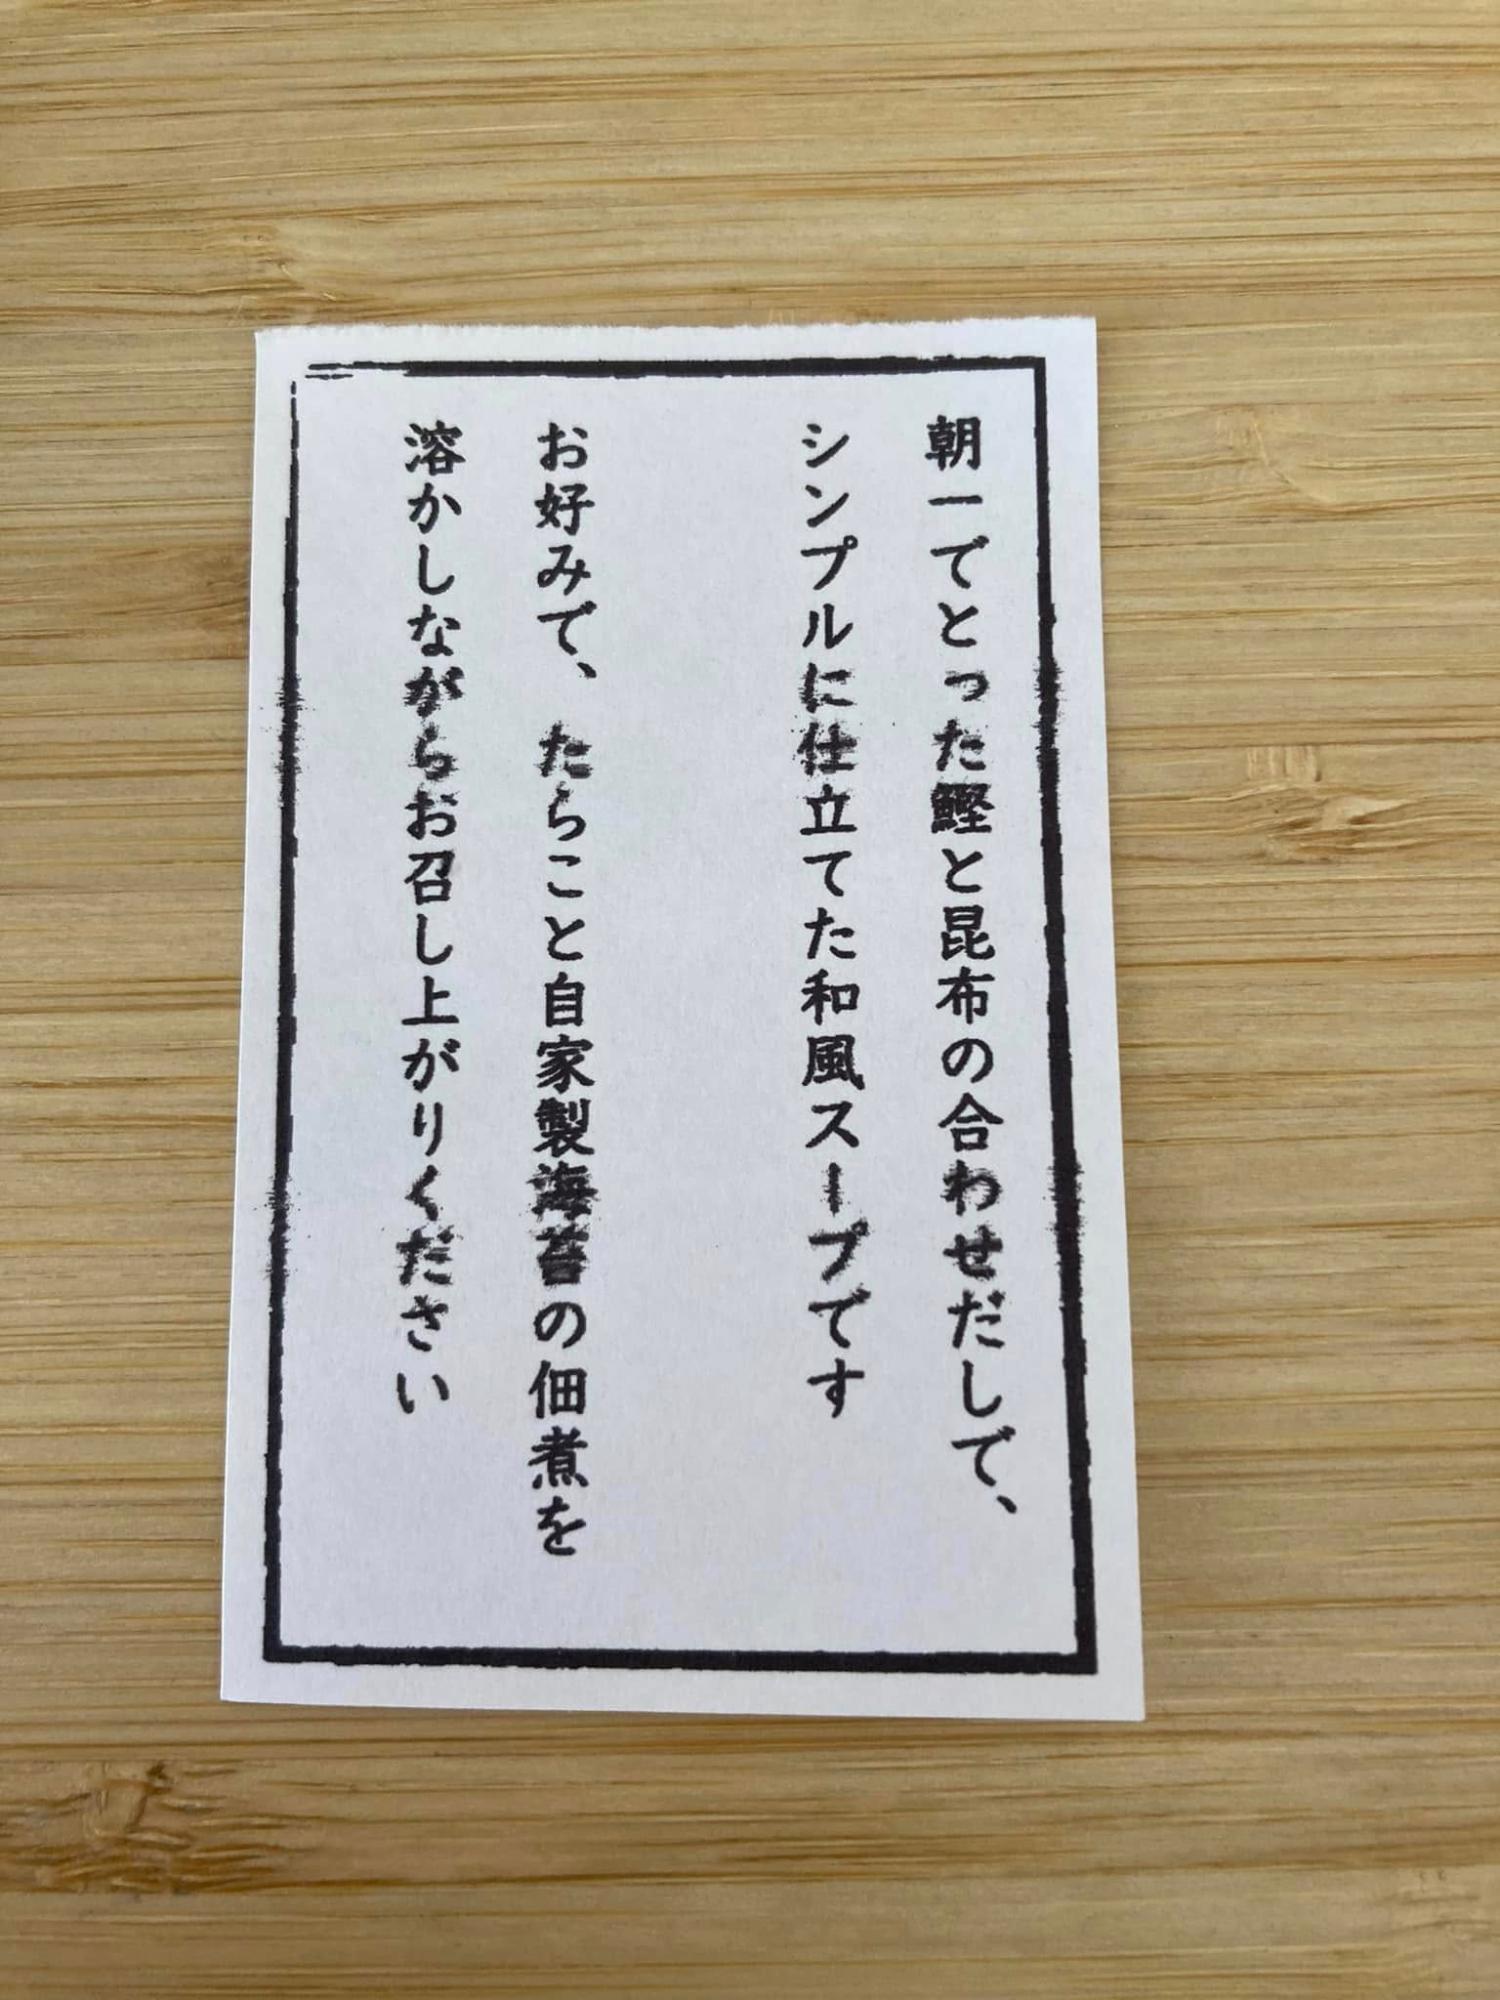 朝一でとった鰹と昆布の合わせだしで、
シンプルに仕立てた和風スープです
お好みで、たらこと自家製海苔の佃煮を
溶かしながらお召し上がりください